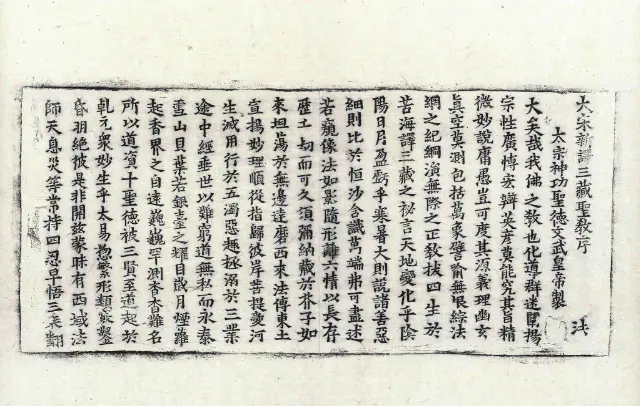 大宋新譯三藏聖教序
太宗神功聖德文武皇帝製
大矣哉我佛之教也化導群迷闡揚
宗性廣愽宏辯英彦莫能究其旨精
微妙說庸愚豈可度其源義理幽玄
真空莫測包括萬象譬喻無垠綜法
網之紀綱演無際之正教拔四生於
苦海譯三藏之祕言天地變化乎陰
陽日月盈虧乎寒暑大則說諸善惡
細則比於恒沙含識萬端弗可盡述
若窺像法如影隨形離六情以長存
歷土劫而可久須彌納藏於芥子如
來坦蕩於無邊達磨西來法傳東土
宣揚妙理順從指歸彼岸菩提愛河
生滅用行於五濁惡趣拯溺於三業
途中經垂世以難窮道無私而永泰
雪山貝葉若銀臺之耀目歲月煙蘿
起香界之自遠巍巍罕測杳杳難名
所以道資十聖德被三賢至道起於
乹元衆妙生乎太易惣繁形類竅鑿
昏明絕彼是非開兹蒙昧有西域法
師天息災等常持四忍早悟三乘翻